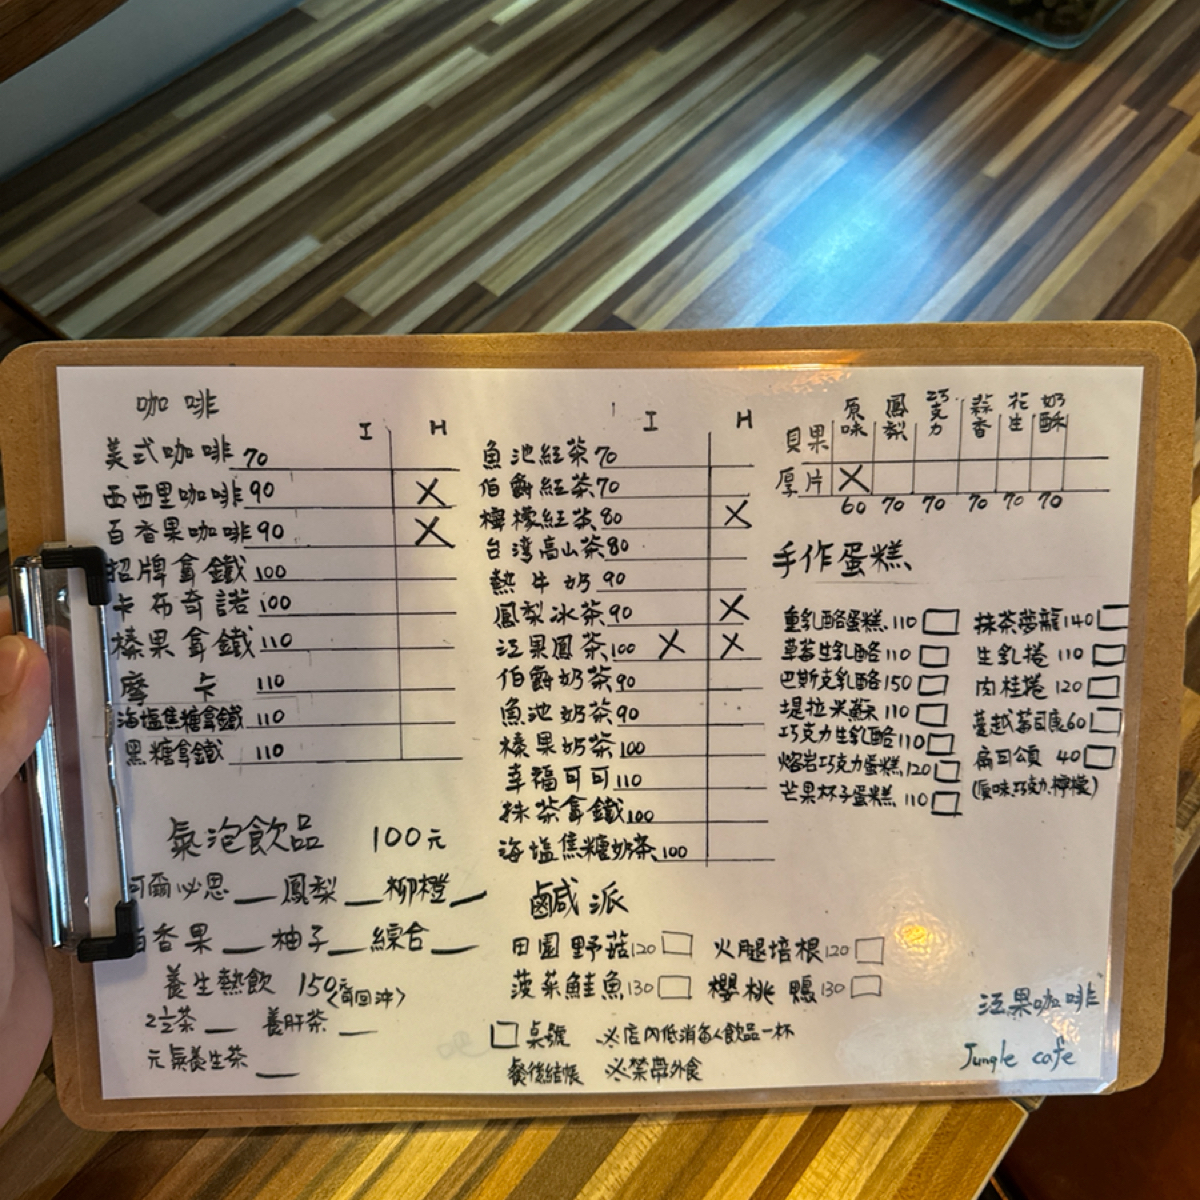 咖啡
I H
美式咖啡 70
西西里咖啡 90 X
百香果咖啡 90 X
招牌拿鐵 100
卡布奇諾 100
榛果拿鐵 110
摩卡 110
海塩焦糖拿鐵 110
黑糖拿鐵 110
氣泡飲品 100元
可爾必思 鳳梨 柳橙
百香果 柚子 綜合
養生熱飲 150元
(可回沖)
2½茶 養肝茶
元氣養生茶
I H
魚池紅茶 70
伯爵紅茶 70
檸檬紅茶 80 X
台湾高山茶 80
熱牛奶 90
鳳梨冰茶 90 X
泟果鳳茶 100 X X
伯爵奶茶 90
魚池奶茶 90
榛果奶茶 100
幸福可可 110
抹茶拿鐵 100
海塩焦糖奶茶 100
鹹派
田園野菇 120 火腿培根 120
菠菜鮭魚 130 櫻桃鴨 130
桌號 ※店內低消每人飲品一杯
餐後結帳 ※禁帶外食
原味 鳳梨 巧克力 蒜香 花生 奶酥
貝果
厚片 X
60 70 70 70 70 70
手作蛋糕
重乳酪蛋糕 110 抹茶夢龍 140
草莓生乳酪 110 生乳捲 110
巴斯克乳酪 150 肉桂捲 120
堤拉米蘇 110 蔓越莓司康 60
巧克力生乳酪 110 費南雪 40
熔岩巧克力蛋糕 120 (原味.巧克力.檸檬)
芒果杯子蛋糕 110
泟果咖啡
Jungle cafe